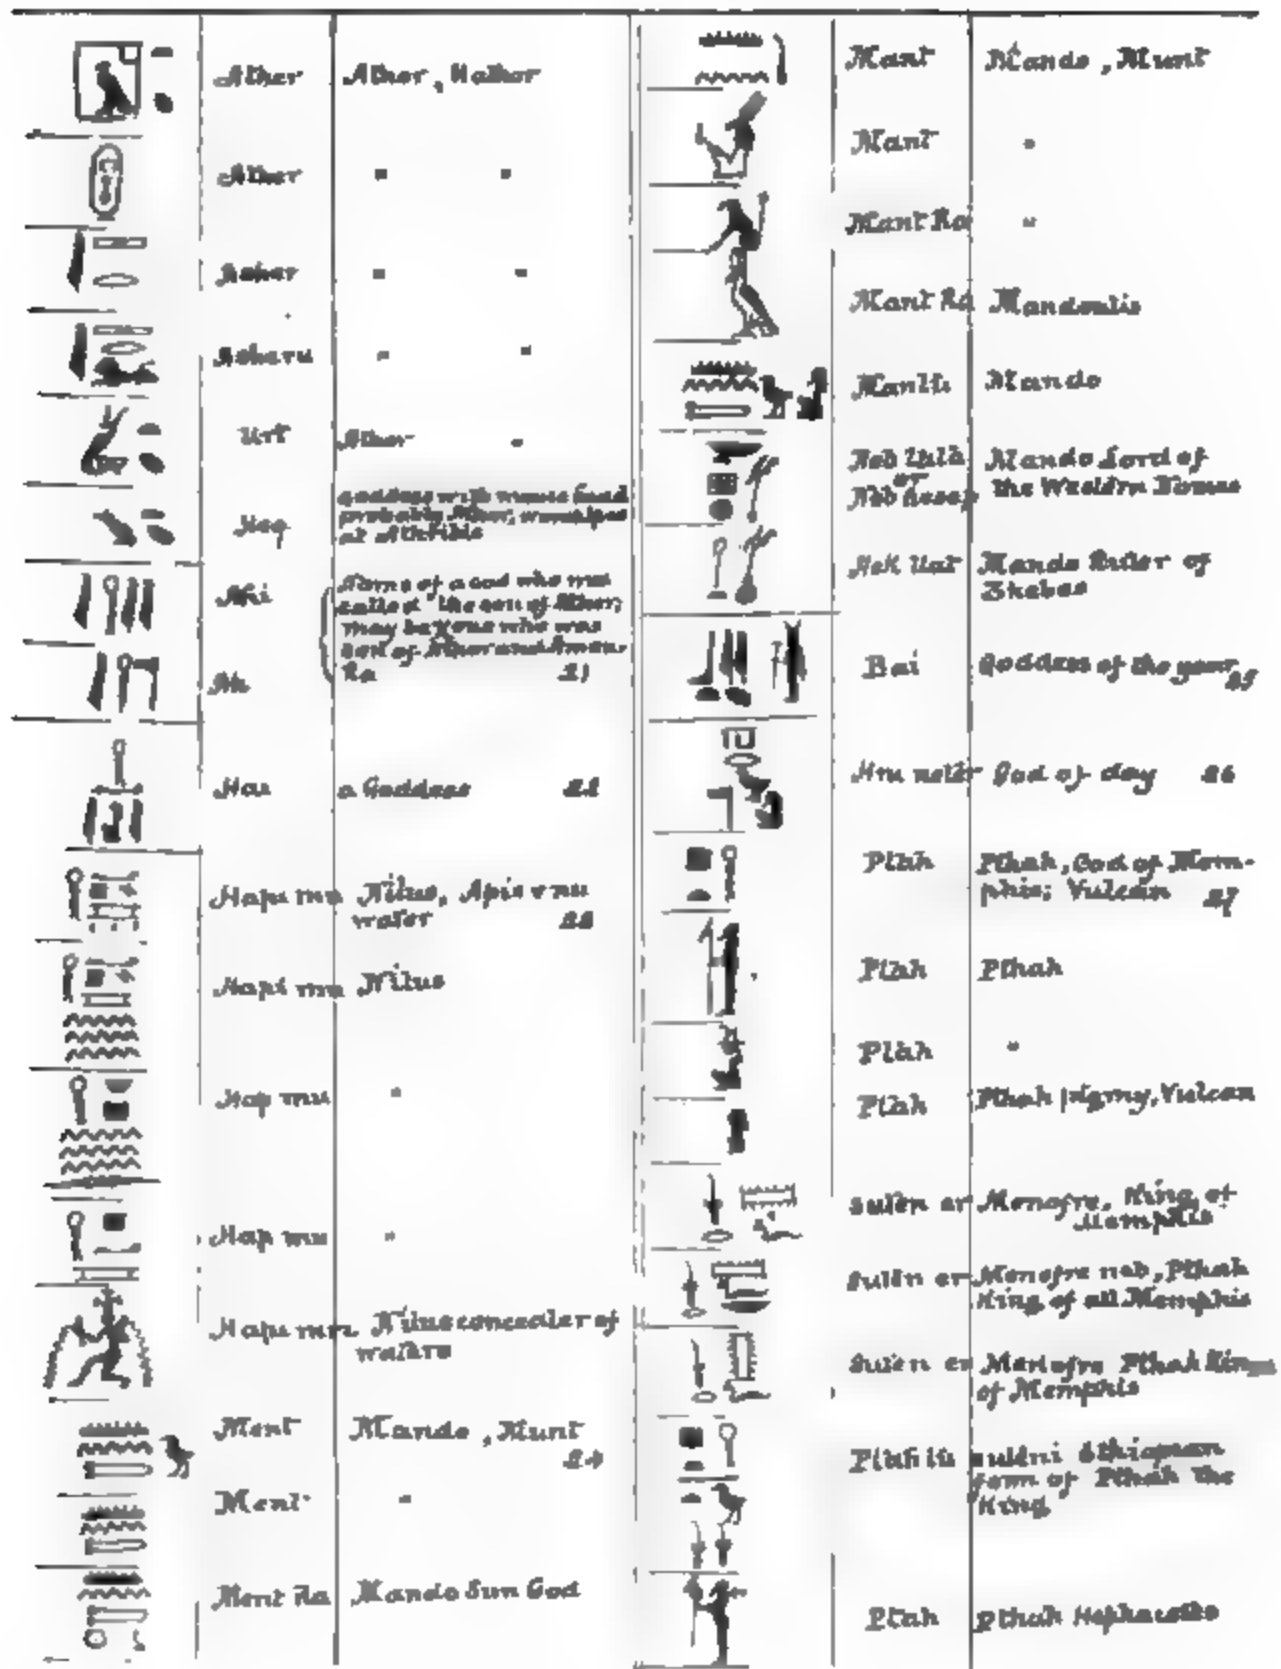 Ather Athor, Hathor
Ather " "
Asher " "
Asheru " "
Urt Athor "
Heq goddess with mouse head
probably Athor, worshiped
at Athribis
Ahi Name of a God who was
called "the son of Athor,
may be one who was
son of Athor and Amen-
Ah Ra 21
Hai a Goddess 22
Hapi mu Nilus, Apis v mu
water 23
Hapi mu Nilus
Hap mu "
Hap mu "
Hapi mu Nilus conceder of
waters
Ment Mando, Munt
24
Ment "
Ment Ra Mando Sun God
Mant Mando, Munt
Mant "
Mant Ra "
Mant Ra Mandoulis
Manth Mando
Neb Mando Lord of
or the Western Nomes
Neb
Hek Uat Mando Ruler of
Thebes
Bai Goddess of the year 25
Hru neter God of day 26
Ptah Pthah, God of Mem-
phis; Vulcan 27
Ptah Pthah
Ptah "
Ptah Pthah pigmy, Vulcan
Suten er Menofre, King of
Memphis
Suten er Menofre neb, Pthah
King of all Memphis
Suten er Menofre Pthah King
of Memphis
suteni Ethiopian
form of Pthah the
King
Ptah Pthah Hephaestos